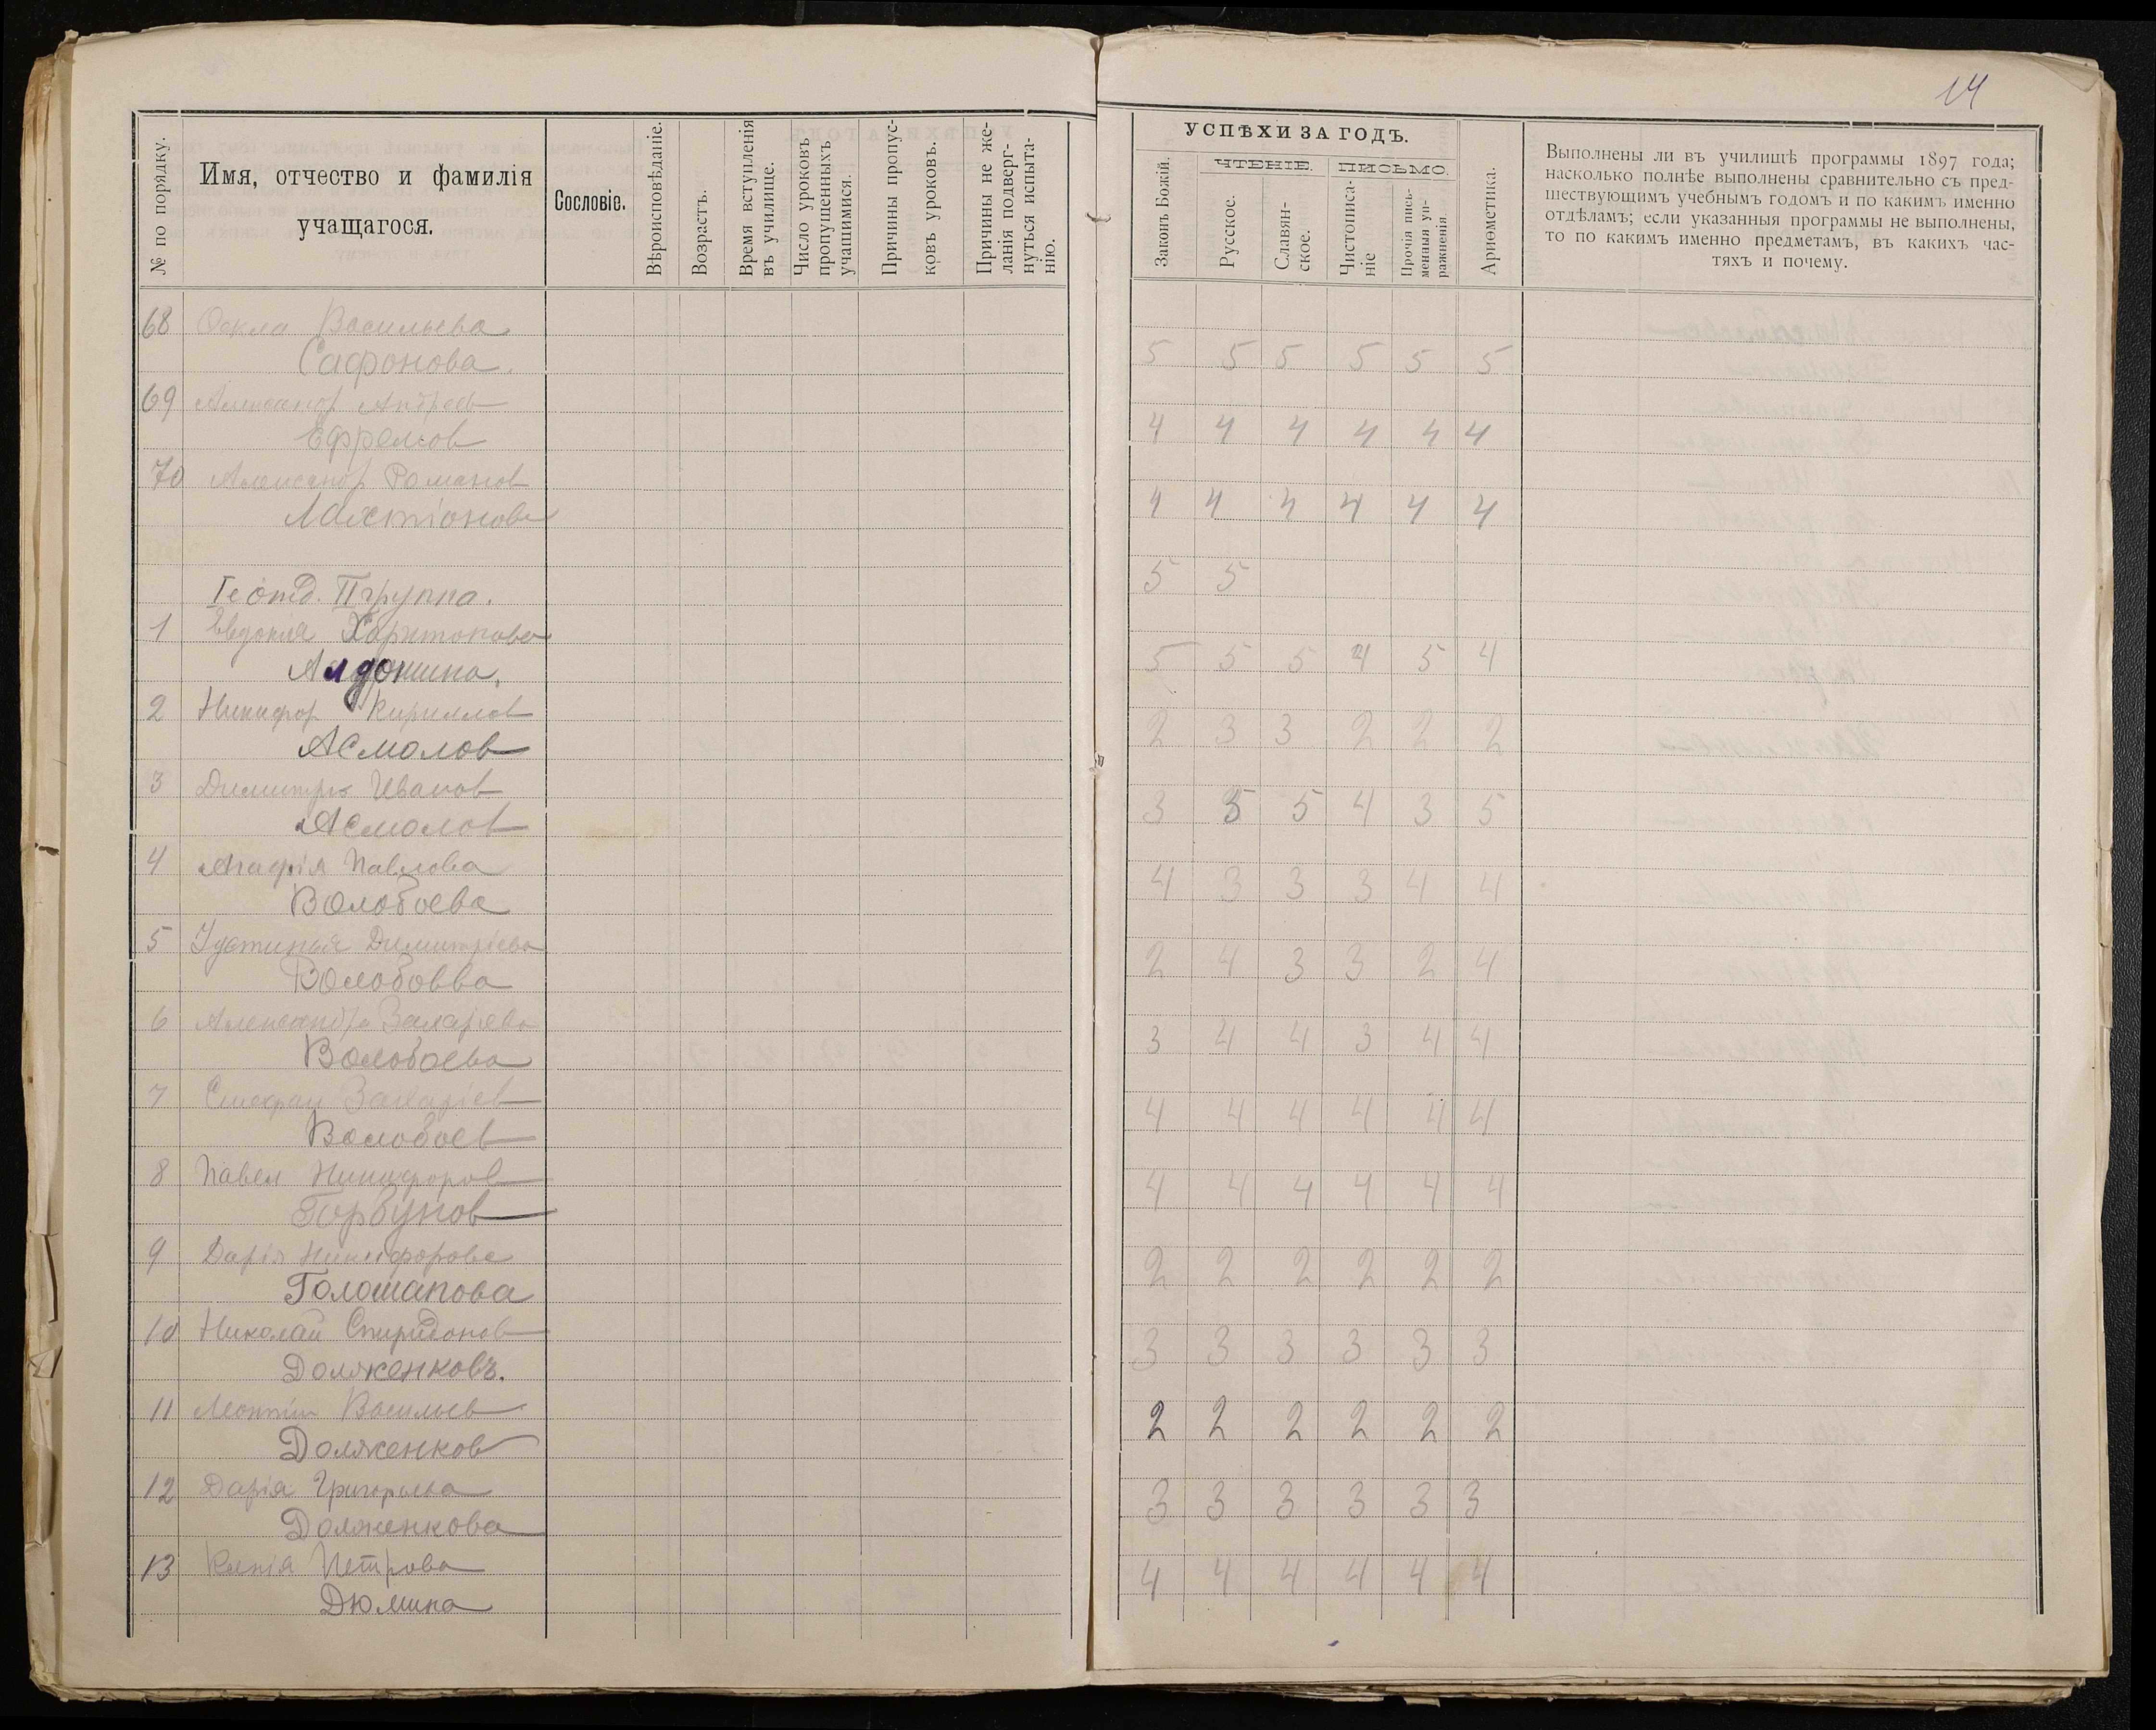 14
№ по порядку.
Имя, отчество и фамилія
учащагося.
Сословіе.
Вѣроисповѣданіе.
Возрастъ.
Время вступленія
въ училище.
Число уроковъ
пропущенныхъ
учащимися.
Причины пропус-
ковъ уроковъ.
Причины не же-
ланія подверг-
нуться испыта-
нію.
УСПѢХИ ЗА ГОДЪ.
Законъ Божій.
ЧТЕНІЕ.
Русское.
Славян-
ское.
ПИСЬМО.
Чистописа-
ніе
Прочія пись-
менныя уп-
ражненія.
Ариѳметика.
Выполнены ли въ училищѣ программы 1897 года;
насколько полнѣе выполнены сравнительно съ пред-
шествующимъ учебнымъ годомъ и по какимъ именно
отдѣламъ; если указанныя программы не выполнены,
то по какимъ именно предметамъ, въ какихъ час-
тяхъ и почему.
68 Васильева
Сафонова. 5 5 5 5 5 5
69 Александр Андреев
Ефремов 4 4 4 4 4 4
70 Александр Романов
4 4 4 4 4 4
5 5
группа.
1 Евдокия Харитонова
Алдонина. 5 5 5 4 5 4
2 Никифор Кириллов
Асмолов 2 3 3 2 2 2
3 Димитрій Иванов
Асмолов 3 5 5 4 3 5
4 Агафія Павлова
Волобоева 4 3 3 3 4 4
5 Устинья Димитріева
Волобоева 2 4 3 3 2 4
6 Александра Захарьева
Волобоева 3 4 4 3 4 4
7 Стефан Захаріев
Волобоев 4 4 4 4 4 4
8 Павел Никифоров
Горбунов 4 4 4 4 4 4
9 Дарія Никифорова
Голошапова 2 2 2 2 2 2
10 Николай Спиридонов
Долженковъ. 3 3 3 3 3 3
11 Леонтій Васильев
Долженков 2 2 2 2 2 2
12 Дарія Григорьева
Долженкова 3 3 3 3 3 3
13 Ксенія Петрова
Дюмина 4 4 4 4 4 4